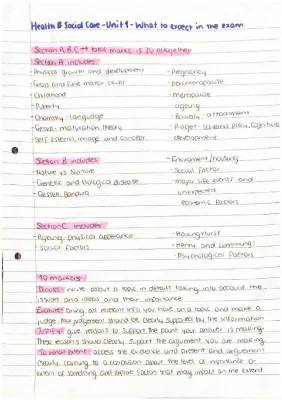 Health & Social Care - Unit 1 - What to expect in the exam
Section A, B, C → total marks is 90 altogether
Section A includes
- Physical growth and development
- Gross and fine motor skills
- Childhood
- Puberty
- Chomsky - language
- Gesell - maturation theory
- Self esteem, image and concept
- Pregnancy
- perimenopause
- menopause
- ageing
- Bowlby attachment
- Piaget - schema play, cognitive development
Section B includes
- Nature vs Nurture
- Genetic and biological disease
- Gesell, Bandura
- Environment/housing
- Social factor
- major life events and
unexpected
- economic factors
Section C includes
- Ageing - physical appearance
- Social factors
- Havinghurst
- Henry and Cumming
- Psychological factors
10 markers
Discuss - write about a topic in detail taking into account the
issues and ideas and their importance
Evaluate - bring all relevant info you have on a topic and make a
judge. The judgement should be clearly supported by the information
Justify - give reasons to support the point your answer is making.
These reasons should clearly support the argument you are making
To what extent - access the evidence and present and arguement
clearly, coming to a conclusion about the level of importance or
extent of something and explore factor that may impact on the extent